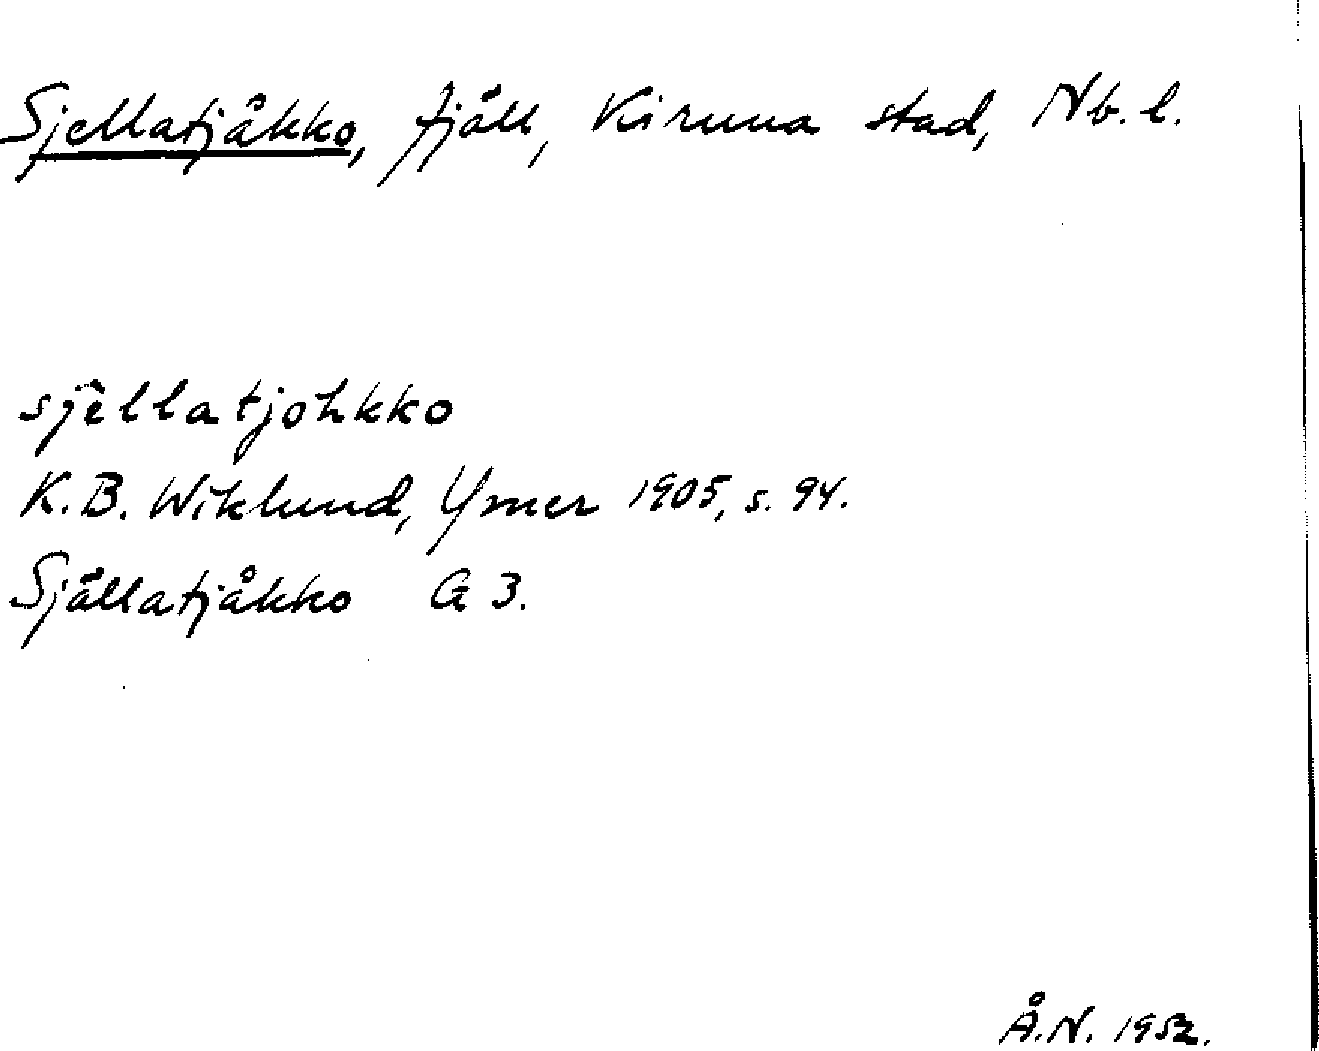 Sjellatjåkko, fjäll, Kiruna stad, Nb. l.
sjêllatjohkko
K.B. Wiklund, Ymer 1905, s. 94.
Själlatjåkko G 3.
Å.N. 1952.